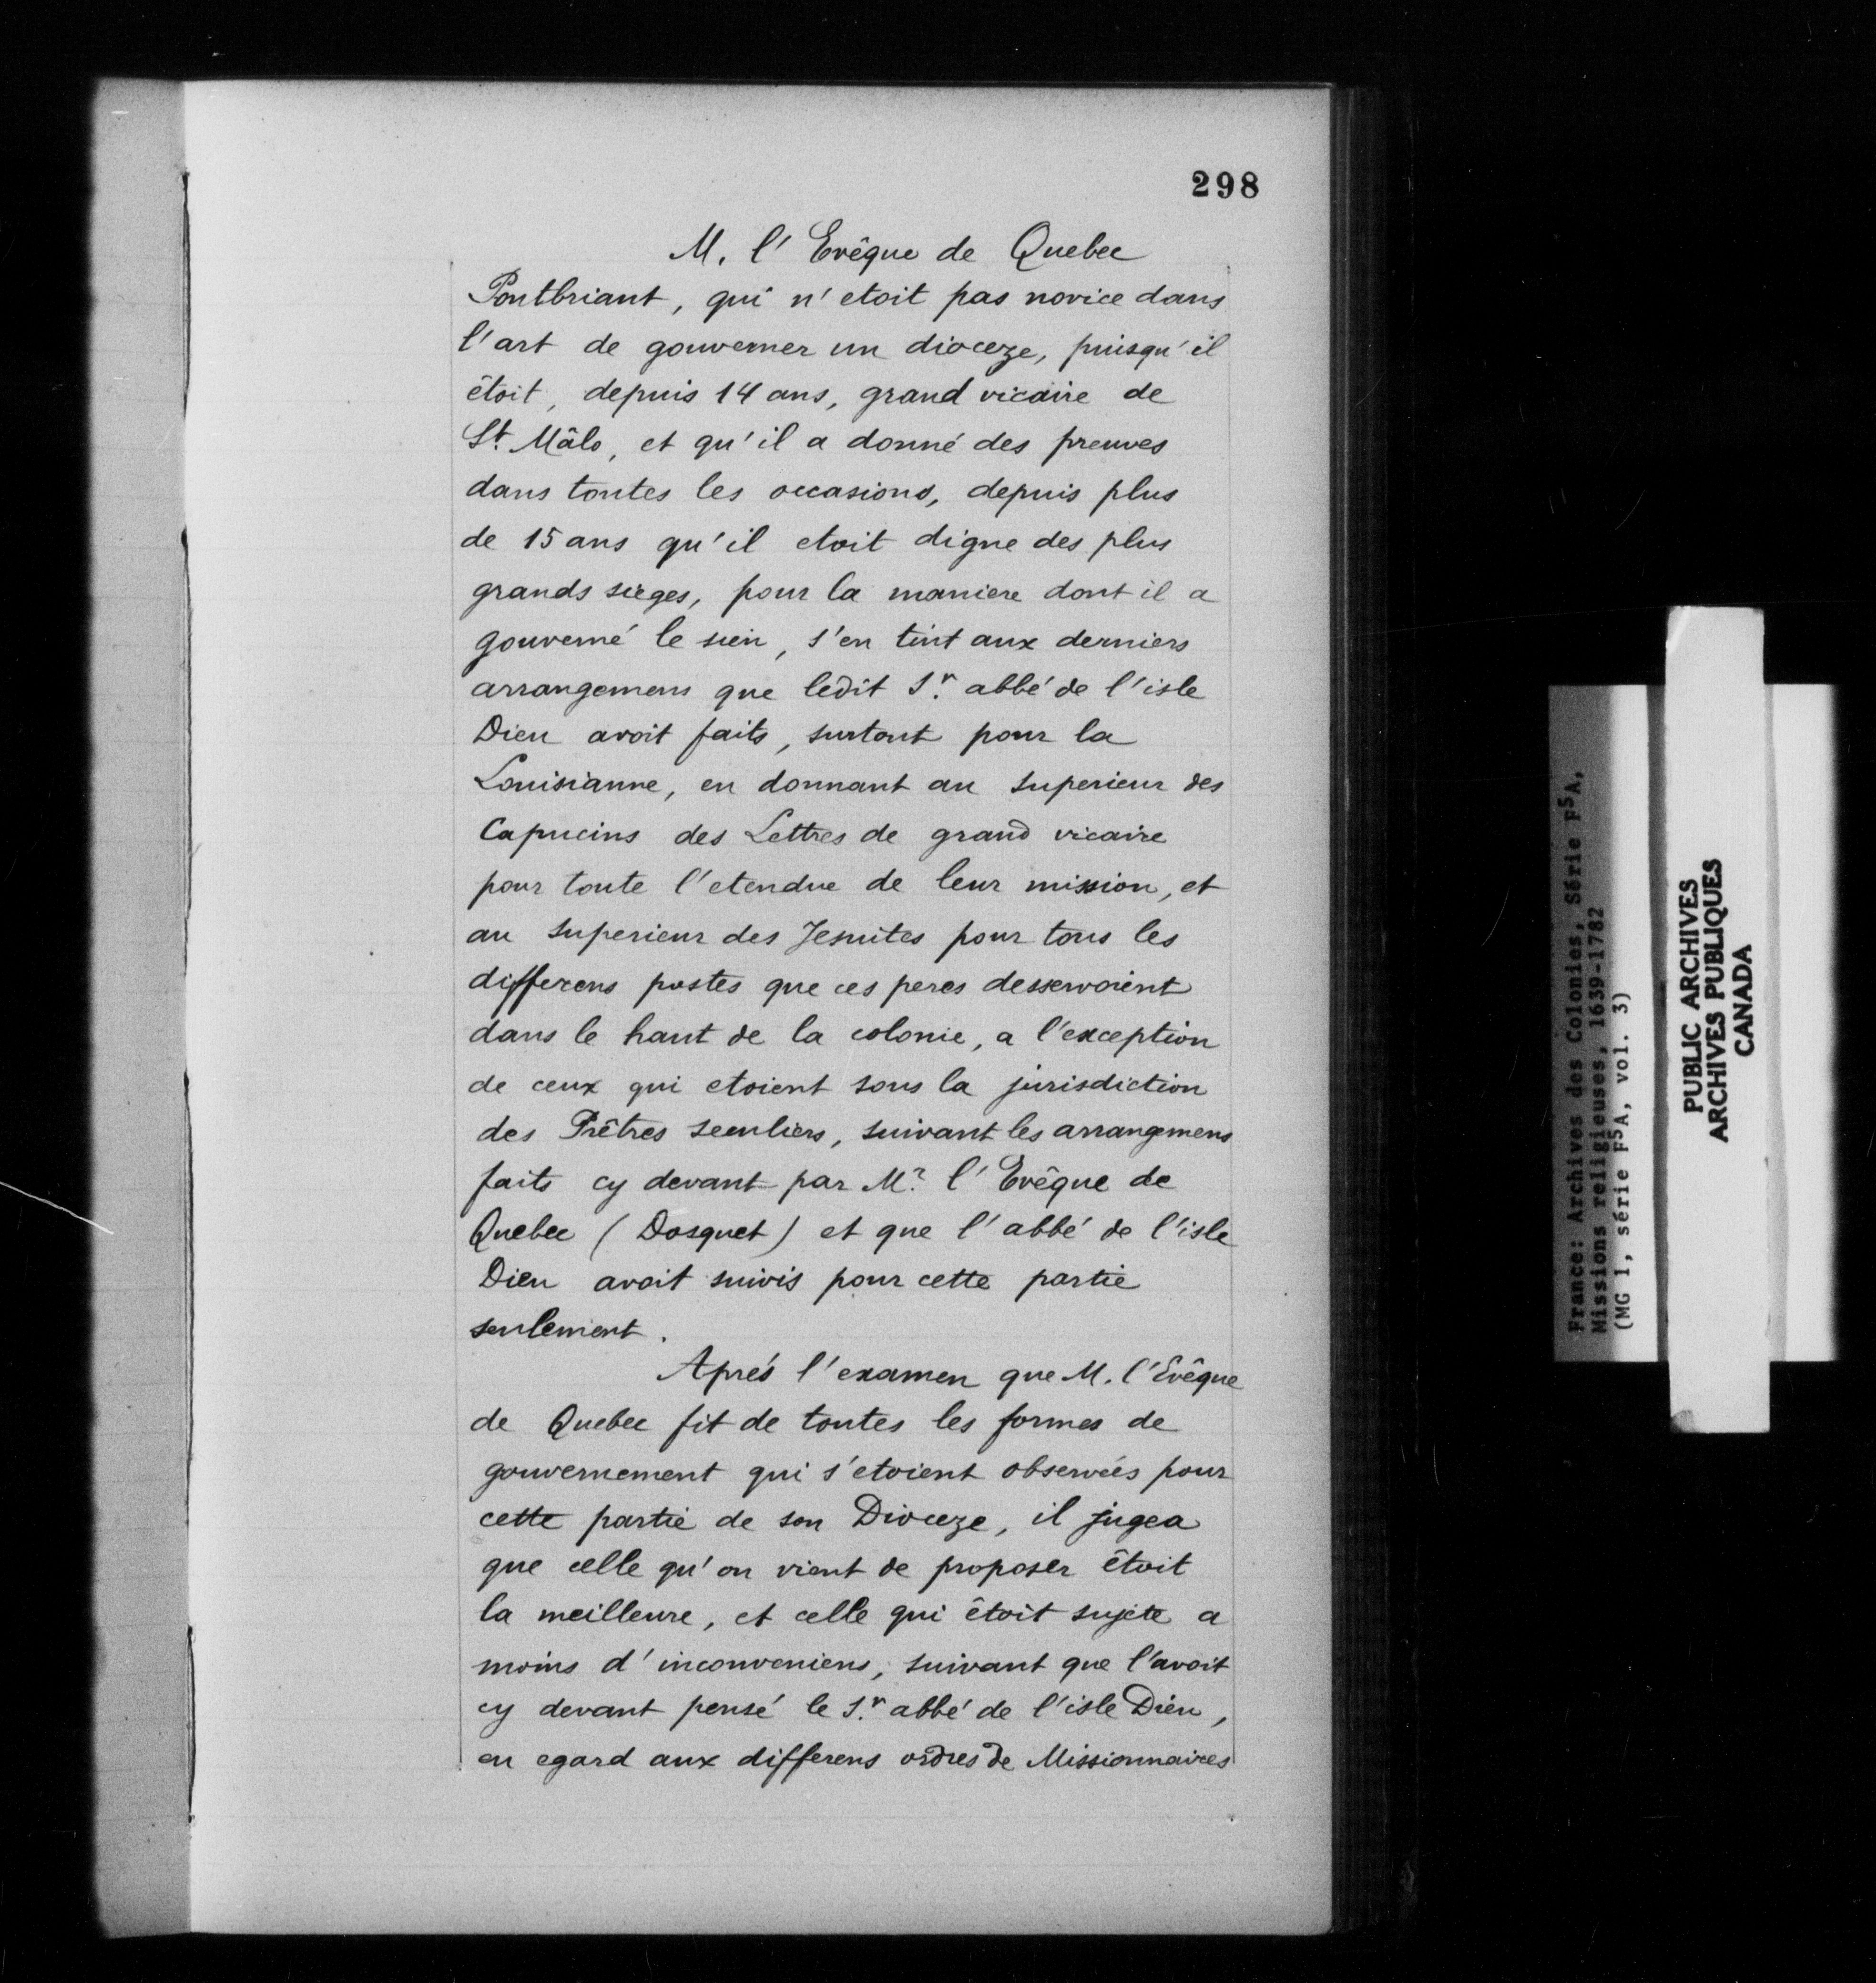 298
M. l'Evêque de Quebec
Pontbriant, qui n'etoit pas novice dans
l'art de gouverner un dioceze, puisqu'il
êtoit, depuis 14 ans, grand vicaire de
St. Mâlo, et qu'il a donné des preuves
dans toutes les occasions, depuis plus
de 15 ans qu'il etoit digne des plus
grands sieges, pour la maniere dont il a
gouverné le sien, s'en tint aux derniers
arrangemens que ledit Sr. abbé de l'isle
Dieu avoit faits, surtout pour la
Louisianne, en donnant au Superieur des
Capucins des Lettres de grand vicaire
pour toute l'etendue de leur mission, et
au Superieur des Jesuites pour tous les
differens postes que ces peres desservoient
dans le haut de la colonie, a l'exception
de ceux qui etoient sous la jurisdiction
des Prêtres seculiers, suivant les arrangemens
faits cy devant par Mr. l'Evêque de
Quebec (Dosquet) et que l'abbé de l'isle
Dieu avoit suivis pour cette partie
seulement.
Aprés l'examen que M. l'Evêque
de Quebec fit de toutes les formes de
gouvernement qui s'etoient observées pour
cette partie de son Dioceze, il jugea
que celle qu'on vient de proposer êtoit
la meilleure, et celle qui êtoit sujete a
moins d'inconveniens, suivant que l'avoit
cy devant pensé le Sr. abbé de l'isle Dieu,
eu egard aux differens ordres de Missionnaires
France: Archives des Colonies, Série F5A,
Missions religieuses, 1639-1782
(MG 1, série F5A, vol. 3)
PUBLIC ARCHIVES
ARCHIVES PUBLIQUES
CANADA